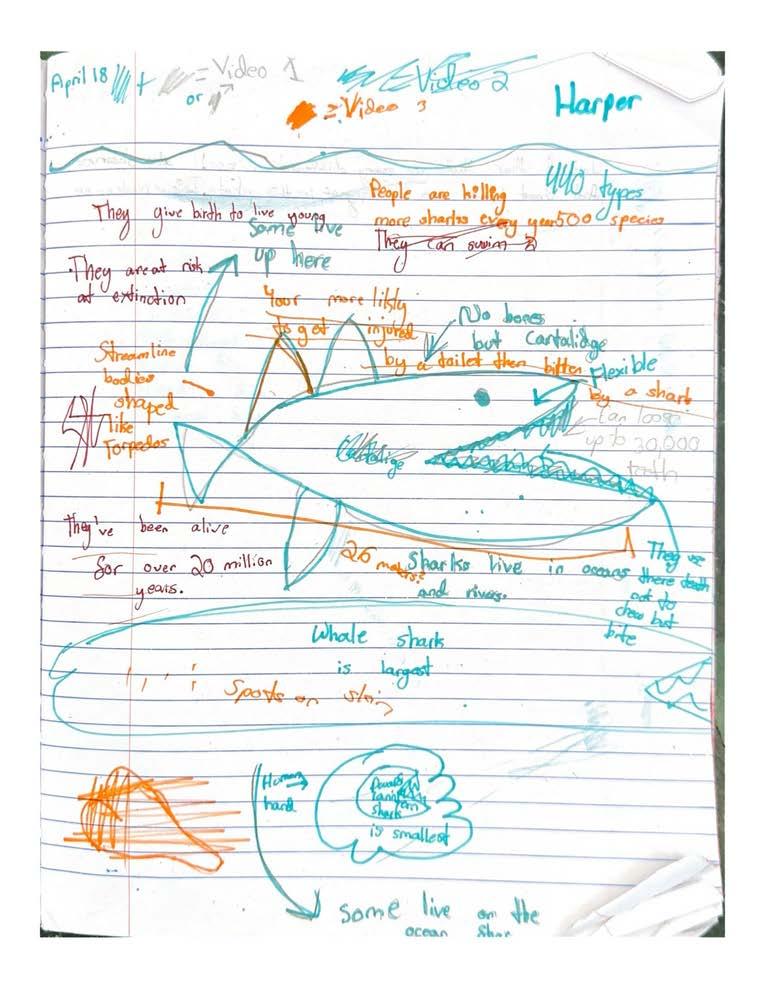 April 18 + = Video 1 = Video 2
or = Video 3 Harper
440 types
People are killing
more sharks every year 500 species
They give birth to live young
They can swim
Some live
up here
They are at risk
at extinction
Your more likly
to get injured
by a toilet then bitten
by a shark
No bones
but Cantalidge
Flexible
Streamline
bodies
shaped
like
Torpedos
Can loose
up to 30,000
teeth
They've been alive
for over 20 million
years.
26 meters?
Sharks live in oceans
and rivers.
They use
there death
not to
chew but
bite
Whale shark
is largest
Spots on skin
Human
hand
shark
is smallest
some live on the
ocean